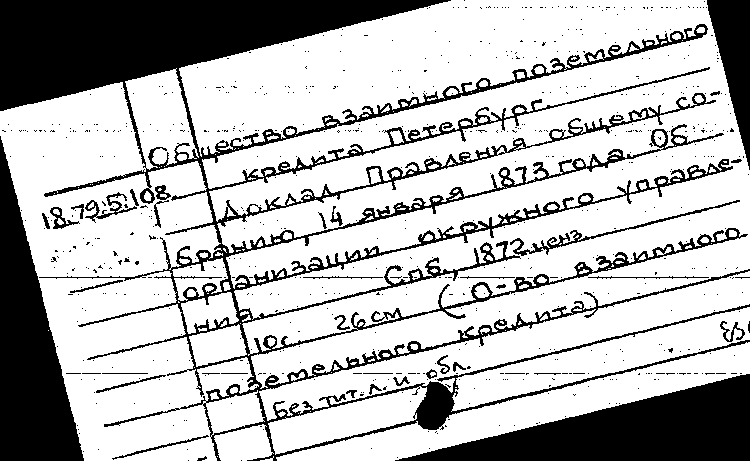 Общество взаимного поземельного
кредита. Петербург.
18.79.5.108. Доклад Правления общему со-
бранию, 14 января 1873 года. Об
организации окружного управле-
ния. Спб., 1872 ценз.
10с. 26см (О-во взаимного
поземельного кредита)
Без тит. л. и обл.